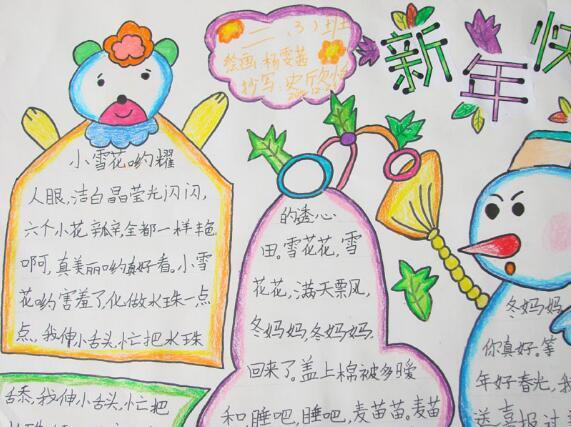 二（3）班
绘画：杨雯茜
抄写：史
新年快
小雪花哟耀
人眼，洁白晶莹光闪闪，
六个小花瓣，全都一样艳
啊呵，真美丽哟真好看。小雪
花哟害羞了，化做水珠一点
点，我伸小舌头，忙把水珠
舌忝，我伸小舌头，忙把
的透心
田。雪花花，雪
花花，满天飘风，
冬妈妈，冬妈妈，
回来了。盖上棉被多暖
和，睡吧，睡吧，麦苗苗。麦苗
冬妈妈
你真好。等
年好春光，我
送喜报过